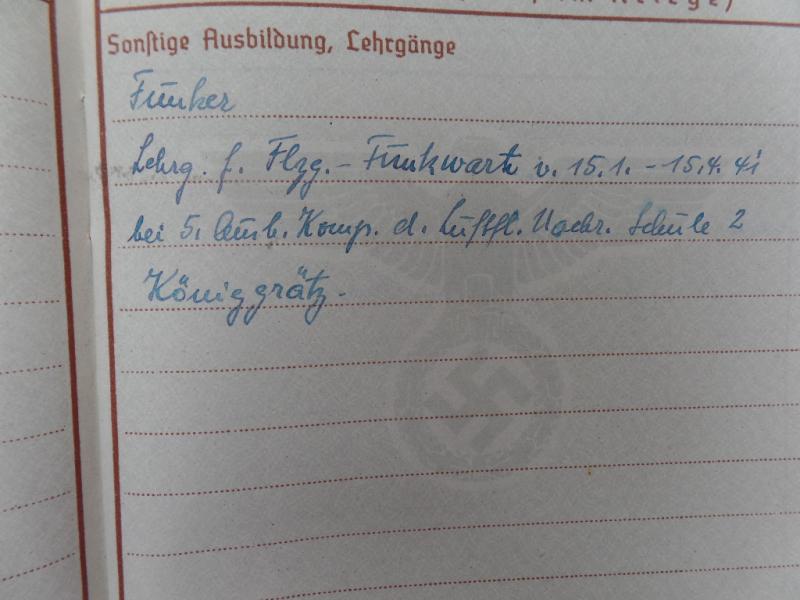 Kriege)
Sonstige Ausbildung, Lehrgänge
Funker
Lehrg. f. Flzg.-Funkwarte v. 15.1. - 15.4. 41
bei 5. Ausb. Komp. d. Luftfl. Nachr. Schule 2
Königgrätz.